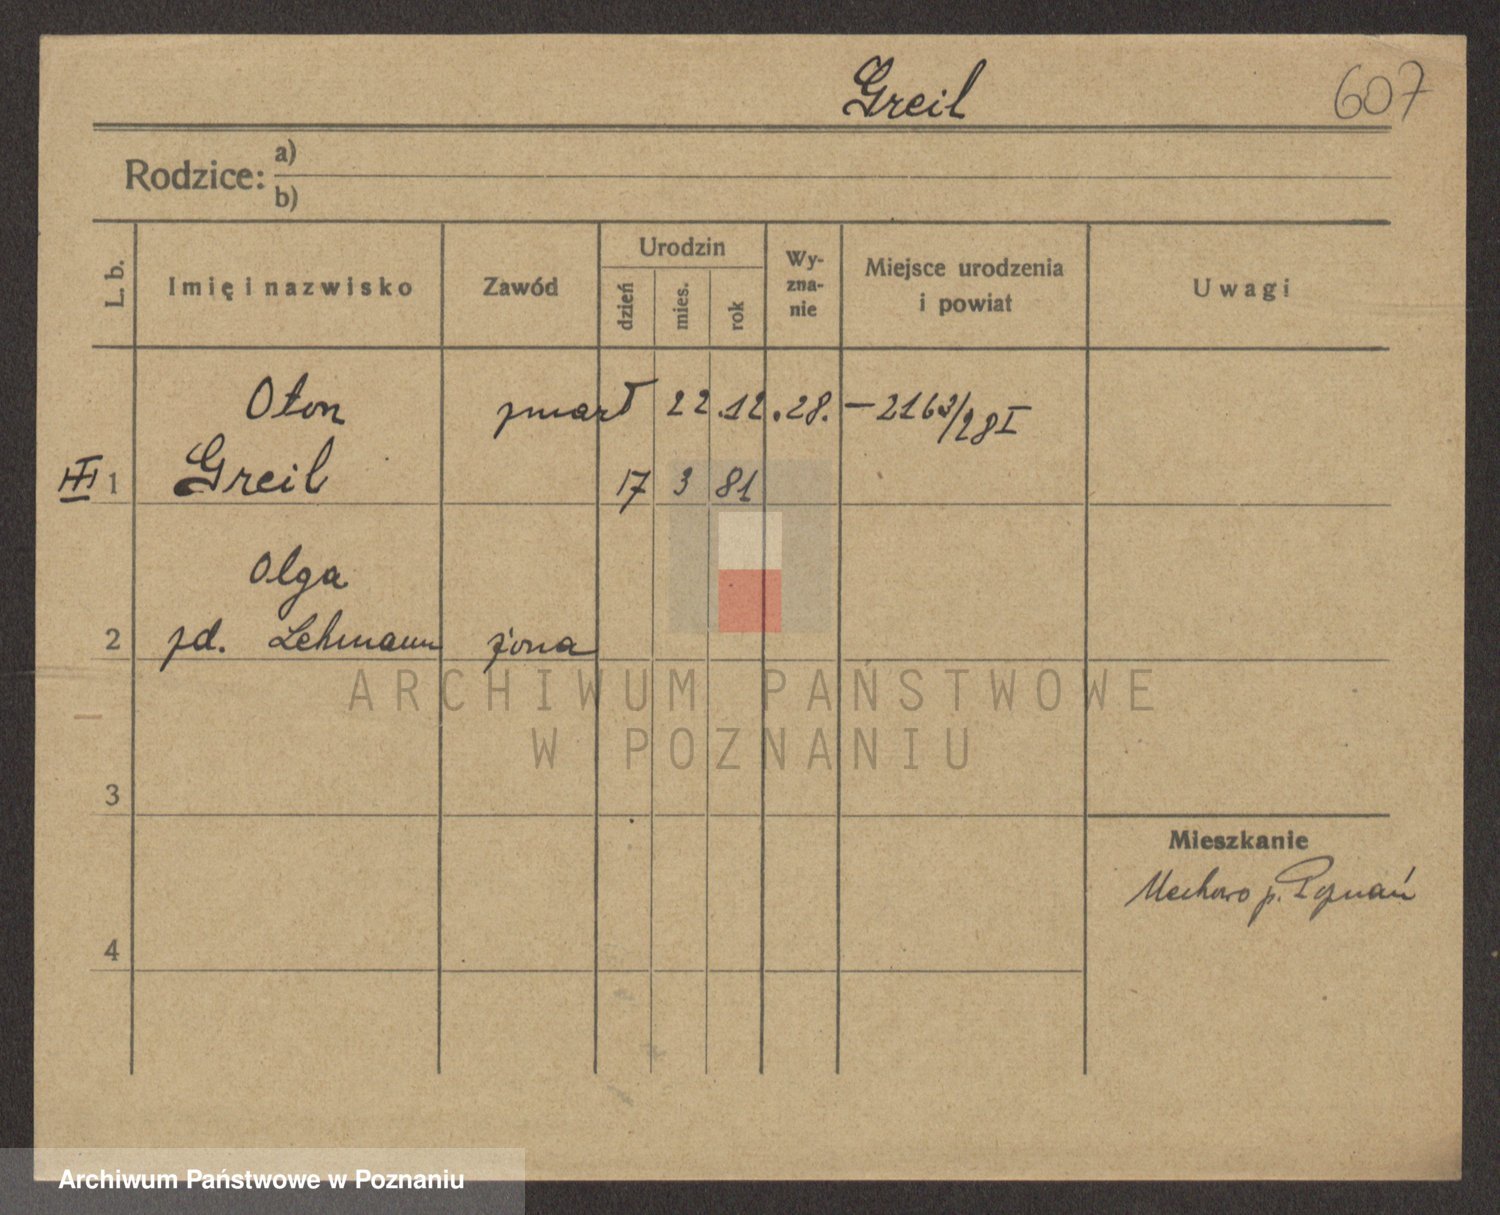 Greil 607
Rodzice: a)
b)
L. b. Imię i nazwisko Zawód Urodzin dzień mies. rok Wy-zna-nie Miejsce urodzenia i powiat Uwagi
Oton zmarł 22.12.28. — 2163/28 I
III 1 Greil 17 3 81
Olga
2 zd. Lehmann żona
ARCHIWUM PAŃSTWOWE
W POZNANIU
3
Mieszkanie
Mechowo p. Poznań
4
Archiwum Państwowe w Poznaniu